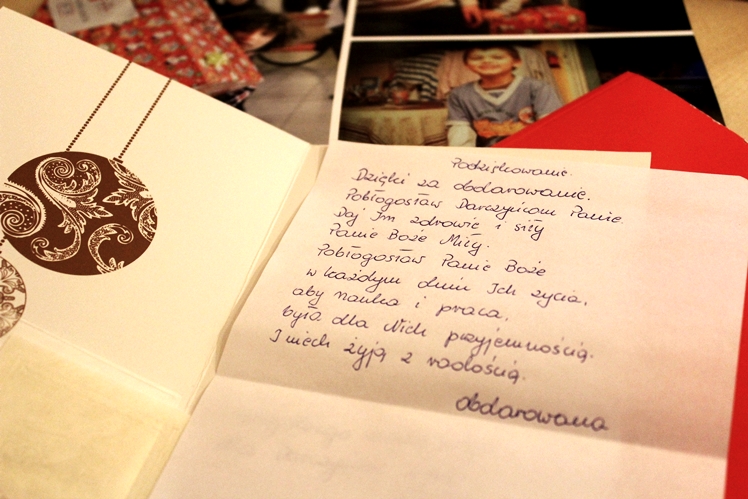 Podziękowanie.
Dzięki za obdarowanie.
Pobłogosław Darczyńcom Panie.
Daj Im zdrowie i siły
Panie Boże Miły.
Pobłogosław Panie Boże
w każdym dniu Ich życia,
aby nauka i praca,
była dla Nich przyjemnością.
I niech żyją z radością.
obdarowana